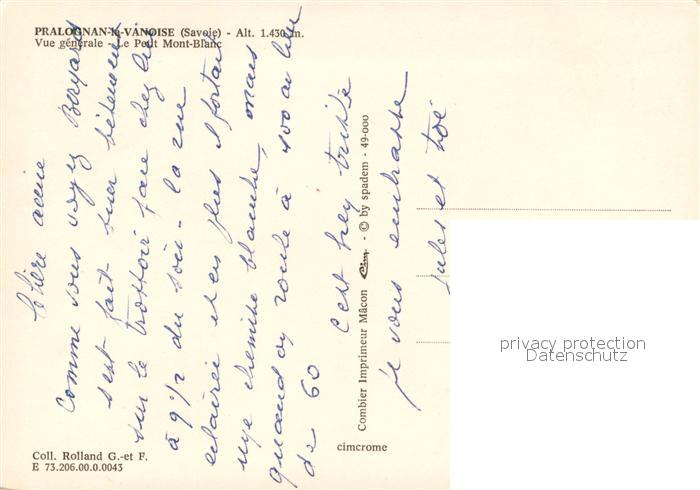 PRALOGNAN-la-VANOISE (Savoie) - Alt. 1.430 m.
Vue générale - Le Petit Mont-Blanc
Chère amie
Comme vous voyez
s'est fait tuer bêtement
sur le trottoir face chez lui
à 9h1/2 du soir. la rue
éclairée et en plus il portait
une chemise blanche, mais
quand on roule à 100 au lieu
de 60
c'est triste
je vous embrasse
Jules et
Combier Imprimeur Mâcon Cim - © by spadem - 49-000
cimcrome
Coll. Rolland G. et F.
E 73.206.00.0.0043
privacy protection
Datenschutz